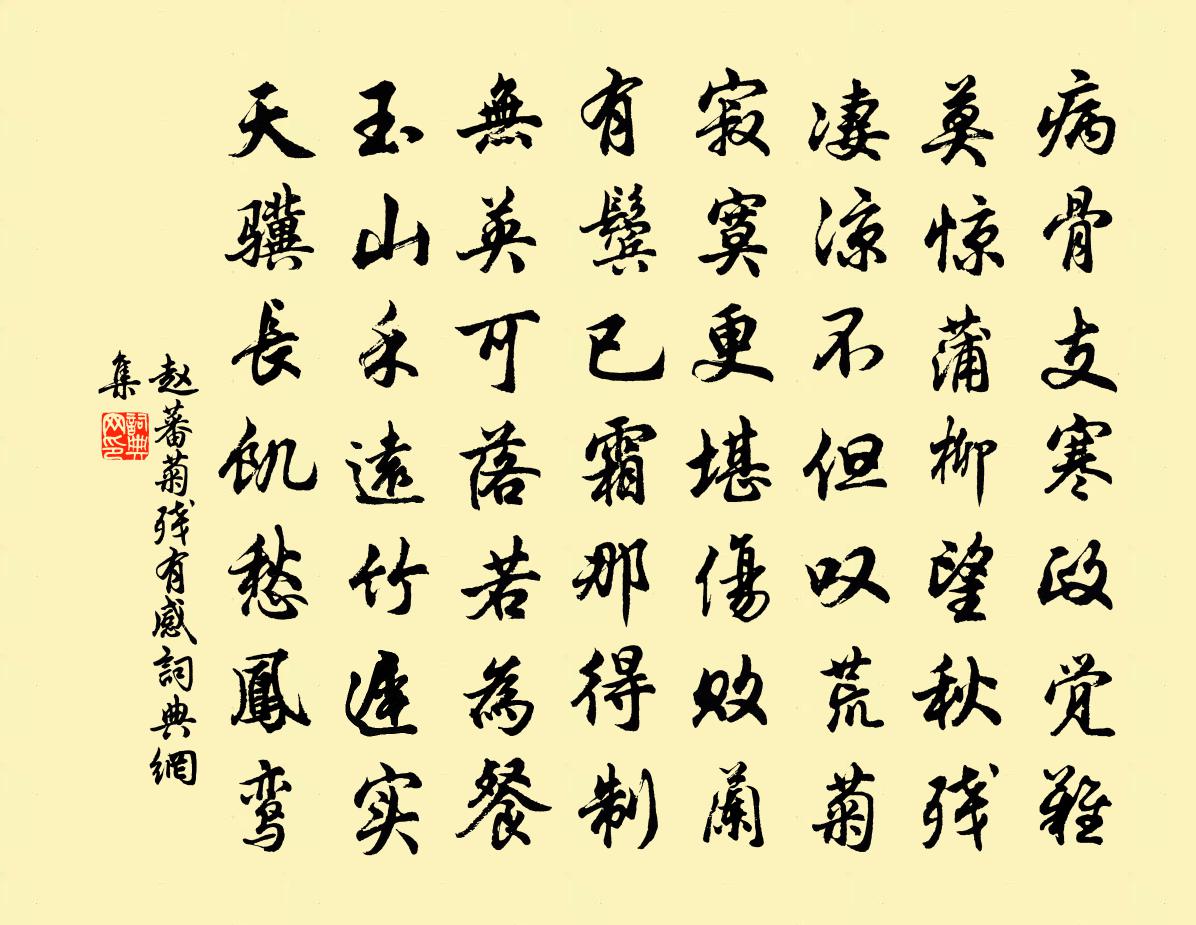 病骨支寒政觉難
莫惊蒲柳望秋残
凄凉不但叹荒菊
寂寞更堪傷败蘭
有鬓已霜那得制
無英可落若為餐
玉山禾遠竹遲实
天骥長飢愁鳳鸾
赵蕃菊残有感詞典網
集
詞典网印